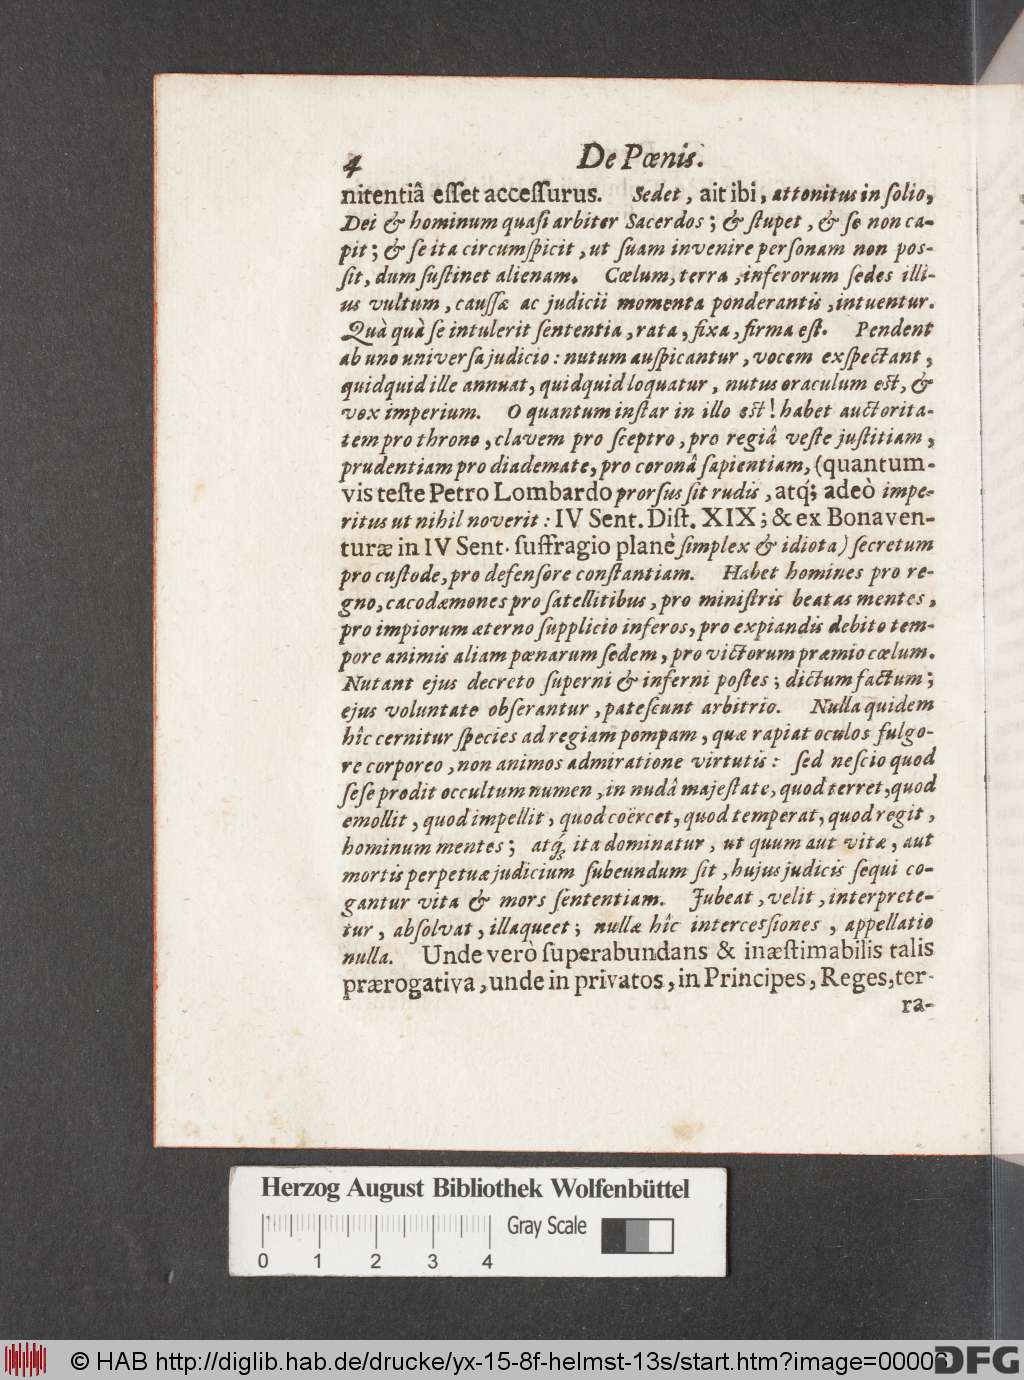 4 De Pœnis.
nitentiâ eſſet acceſſurus. Sedet, ait ibi, attonitus in ſolio,
Dei & hominum quaſi arbiter Sacerdos; & ſtupet, & ſe non ca-
pit; & ſe ita circumſpicit, ut ſuam invenire perſonam non poſ-
ſit, dum ſuſtinet alienam. Cœlum, terra, inferorum ſedes illi-
us vultum, cauſſæ ac judicii momenta ponderantis, intuentur.
Quà quà ſe intulerit ſententia, rata, fixa, firma eſt. Pendent
ab uno univerſa judicio: nutum auſpicantur, vocem exſpectant,
quidquid ille annuat, quidquid loquatur, nutus oraculum eſt, &
vox imperium. O quantum inſtar in illo eſt! habet auctorita-
tem pro throno, clavem pro ſceptro, pro regiâ veſte juſtitiam,
prudentiam pro diademate, pro coronâ ſapientiam, (quantum-
vis teſte Petro Lombardo prorſus ſit rudis, atq́; adeò impe-
ritus ut nihil noverit: IV Sent. Diſt. XIX; & ex Bonaven-
turæ in IV Sent. ſuffragio planè ſimplex & idiota) ſecretum
pro cuſtode, pro defenſore conſtantiam. Habet homines pro re-
gno, cacodæmones pro ſatellitibus, pro miniſtris beatas mentes,
pro impiorum æterno ſupplicio inferos, pro expiandis debito tem-
pore animis aliam pœnarum ſedem, pro victorum præmio cœlum.
Nutant ejus decreto ſuperni & inferni poſtes; dictum factum;
ejus voluntate obſerantur, pateſcunt arbitrio. Nulla quidem
hîc cernitur ſpecies ad regiam pompam, quæ rapiat oculos fulgo-
re corporeo, non animos admiratione virtutis: ſed neſcio quod
ſeſe prodit occultum numen, in nudâ majeſtate, quod terret, quod
emollit, quod impellit, quod coërcet, quod temperat, quod regit,
hominum mentes; atq́; ita dominatur, ut quum aut vitæ, aut
mortis perpetuæ judicium ſubeundum ſit, hujus judicis ſequi co-
gantur vita & mors ſententiam. Jubeat, velit, interprete-
tur, abſolvat, illaqueet; nullæ hîc interceſſiones, appellatio
nulla. Unde verò ſuperabundans & inæſtimabilis talis
prærogativa, unde in privatos, in Principes, Reges, ter-
ra-
Herzog August Bibliothek Wolfenbüttel
Gray Scale
0 1 2 3 4
© HAB http://diglib.hab.de/drucke/yx-15-8f-helmst-13s/start.htm?image=00006
DFG